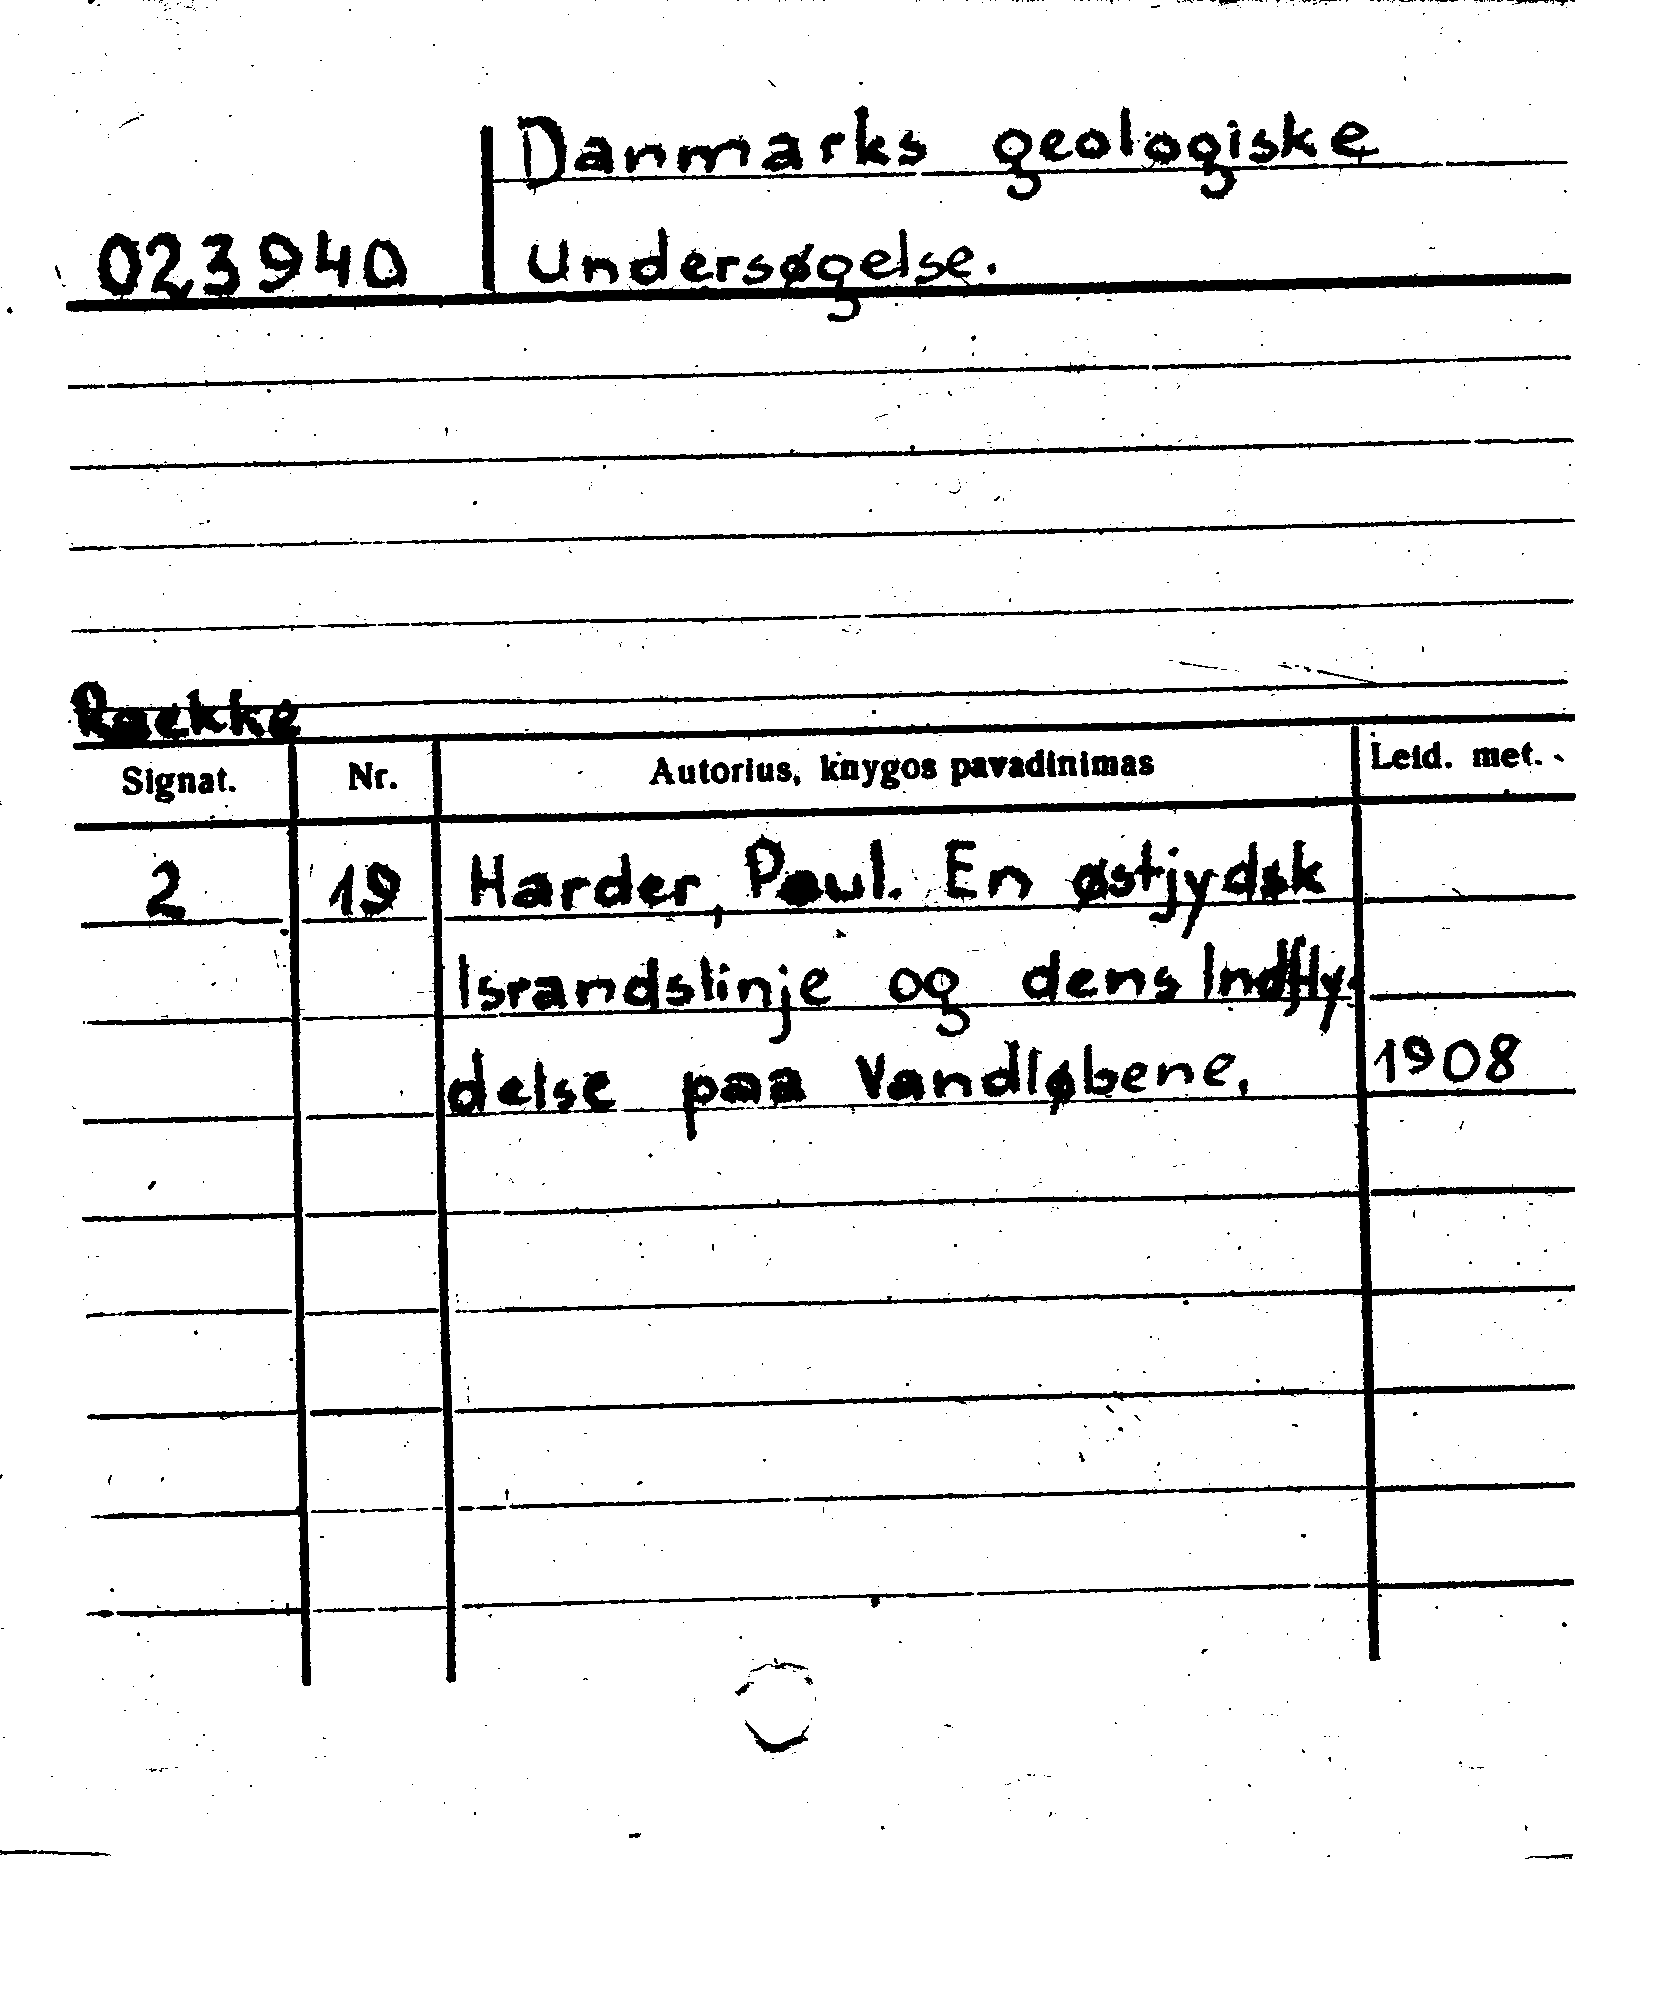 Danmarks geologiske
023940 Undersøgelse.
Raekke
Signat. Nr. Autorius, knygos pavadinimas Leid. met.
2 19 Harder, Poul. En østjydsk
Israndslinje og dens Indfly-
delse paa Vandløbene. 1908